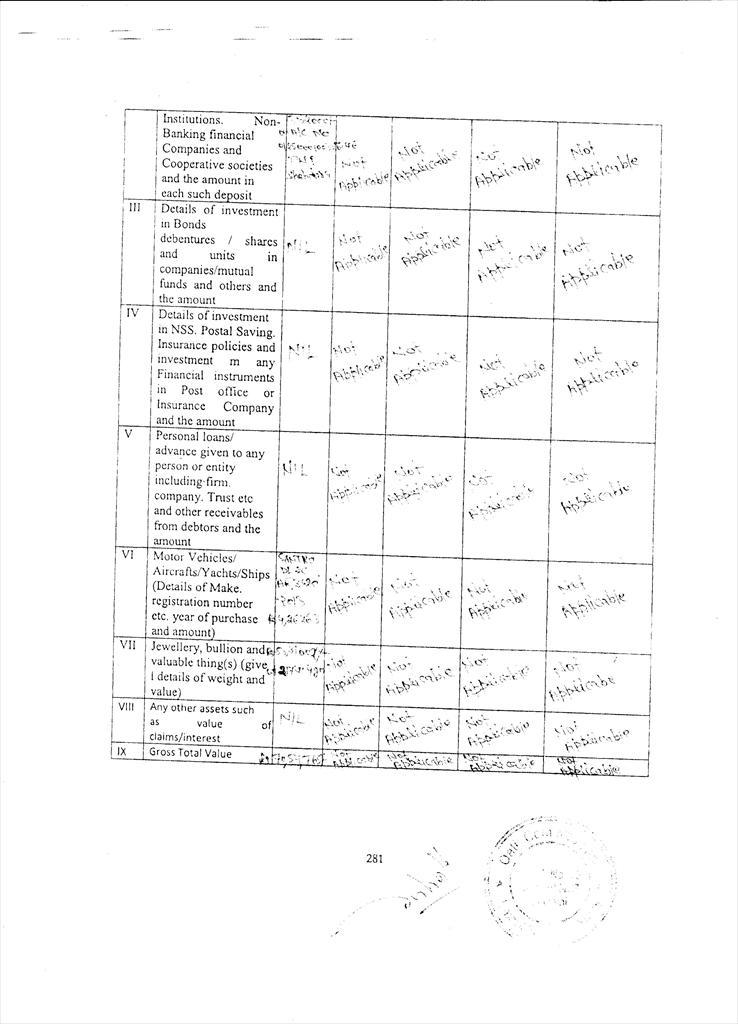 Institutions. Non-
Banking financial
Companies and
Cooperative societies
and the amount in
each such deposit
Not Applicable
Not Applicable
Not Applicable
Not Applicable
III
Details of investment
in Bonds
debentures / shares
and units in
companies/mutual
funds and others and
the amount
NIL
Not Applicable
Not Applicable
Not Applicable
Not Applicable
IV
Details of investment
in NSS. Postal Saving.
Insurance policies and
investment m any
Financial instruments
in Post office or
Insurance Company
and the amount
NIL
Not Applicable
Not Applicable
Not Applicable
Not Applicable
V
Personal loans/
advance given to any
person or entity
including firm.
company. Trust etc
and other receivables
from debtors and the
amount
NIL
Not Applicable
Not Applicable
Not Applicable
Not Applicable
VI
Motor Vehicles/
Aircrafts/Yachts/Ships
(Details of Make.
registration number
etc. year of purchase
and amount)
Not Applicable
Not Applicable
Not Applicable
Not Applicable
VII
Jewellery, bullion and
valuable thing(s) (give
details of weight and
value)
Not Applicable
Not Applicable
Not Applicable
Not Applicable
VIII
Any other assets such
as value of
claims/interest
NIL
Not Applicable
Not Applicable
Not Applicable
Not Applicable
IX
Gross Total Value
Not Applicable
Not Applicable
Not Applicable
Not Applicable
281